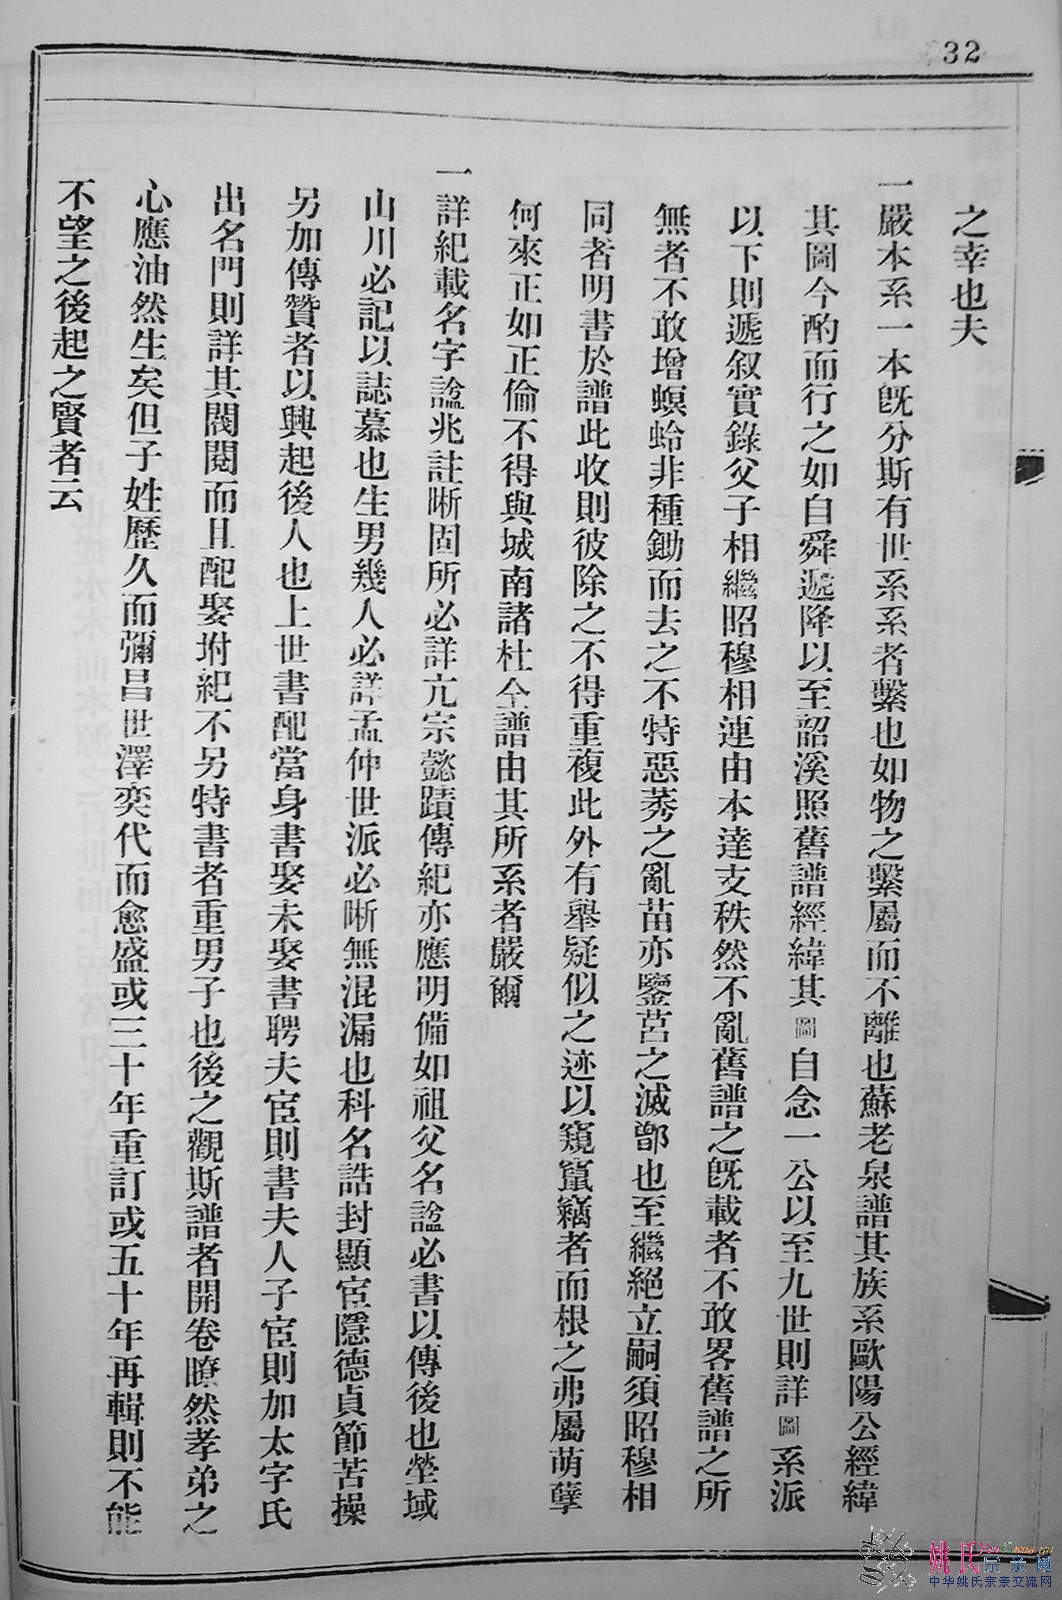 32
之幸也夫
一嚴本系一本既分斯有世系系者繫也如物之繫屬而不離也蘇老泉譜其族系歐陽公經緯
其圖今酌而行之如自舜遞降以至韶溪照舊譜經緯其圖自念一公以至九世則詳圖系派
以下則遞叙實錄父子相繼昭穆相連由本達支秩然不亂舊譜之既載者不敢畧舊譜之所
無者不敢增螟蛉非種鋤而去之不特惡莠之亂苗亦鑒莒之滅鄫也至繼絕立嗣須昭穆相
同者明書於譜此收則彼除之不得重複此外有舉疑似之迹以窺竄竊者而根之弗屬萌孽
何來正如正倫不得與城南諸杜仝譜由其所系者嚴爾
一詳紀載名字諡兆註晰固所必詳亢宗懿蹟傳紀亦應明備如祖父名諡必書以傳後也塋域
山川必記以誌慕也生男幾人必詳孟仲世派必晰無混漏也科名誥封顯宦隱德貞節苦操
另加傳贊者以興起後人也上世書配當身書娶未娶書聘夫宦則書夫人子宦則加太字氏
出名門則詳其閥閱而且配娶坿紀不另特書者重男子也後之觀斯譜者開卷瞭然孝弟之
心應油然生矣但子姓歷久而彌昌世澤奕代而愈盛或三十年重訂或五十年再輯則不能
不望之後起之賢者云
姚氏宗亲网
中华姚氏宗亲交流网